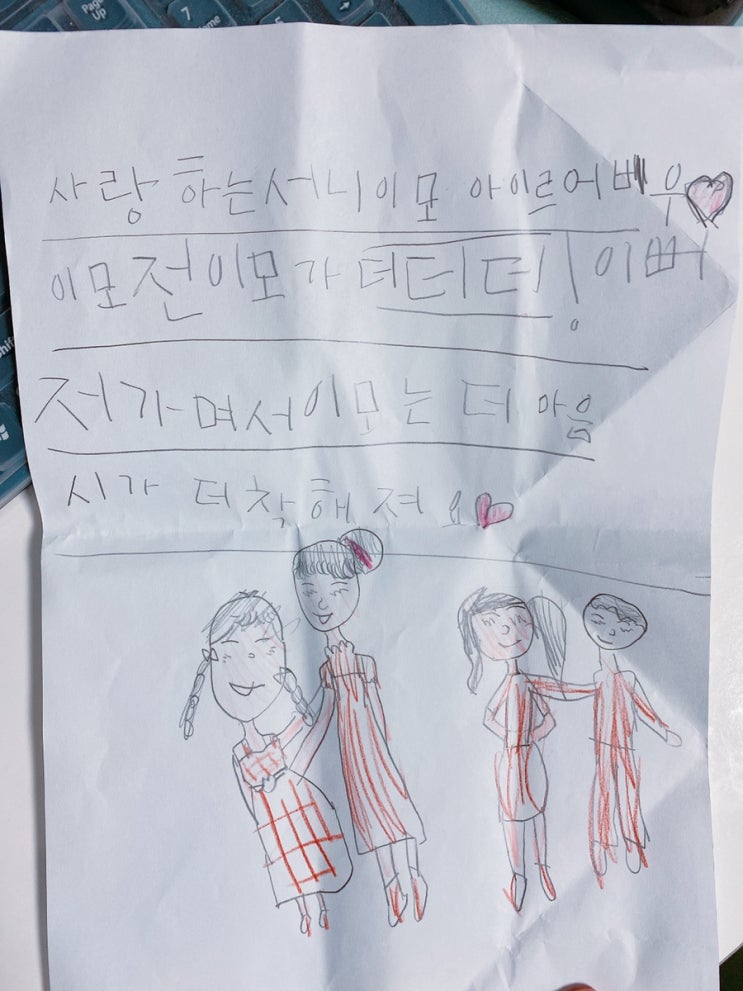 Page Up
7
사랑하는서니이모 아이르어베우
이모전이모가 더더더! 이뻐
저가며서이모는 더 마음
시가 더착해져요